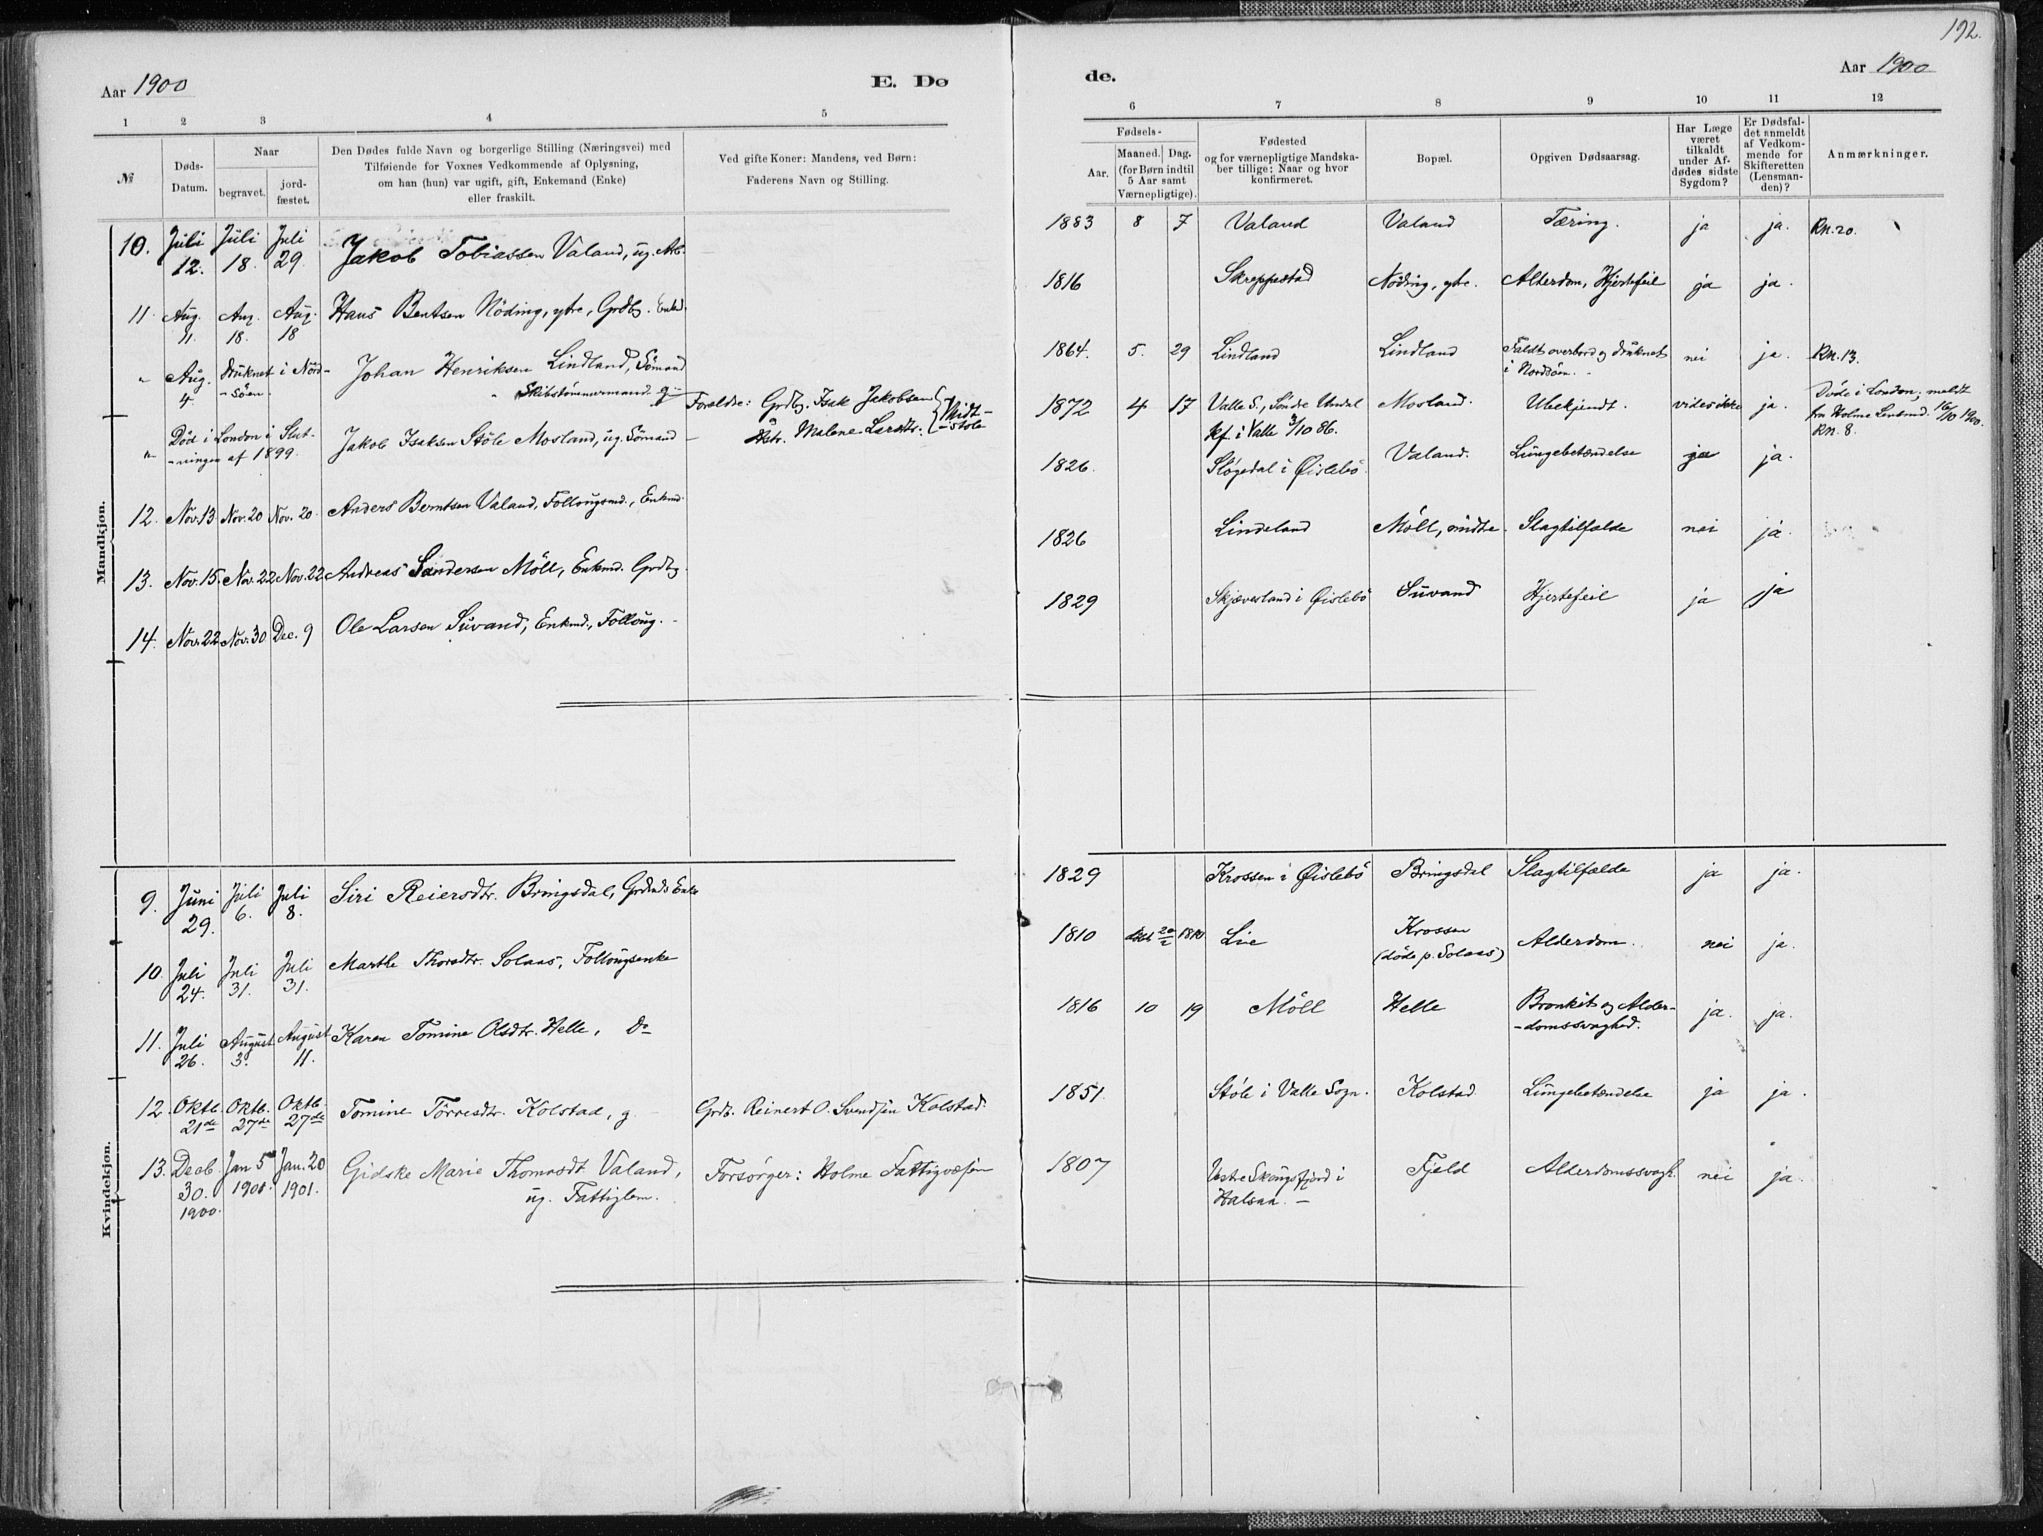 192.
Aar 1900
E. Dø
de.
Aar 1900
1 2 3 4 5
6 7 8 9 10 11 12
№
Døds-
Datum.
Naar
begravet.
jord-
fæstet.
Den Dødes fulde Navn og borgerlige Stilling (Næringsvei) med
Tilføiende for Voxnes Vedkommende af Oplysning,
om han (hun) var ugift, gift, Enkemand (Enke)
eller fraskilt.
Ved gifte Koner: Mandens, ved Børn:
Faderens Navn og Stilling.
Fødsels-
Aar.
Maaned. Dag.
(for Børn indtil
5 Aar samt
Værnepligtige).
Fødested
og for værnepligtige Mandska-
ber tillige: Naar og hvor
konfirmeret.
Bopæl.
Opgiven Dødsaarsag.
Har Læge
været
tilkaldt
under Af-
dødes sidste
Sygdom?
Er Dødsfal-
det anmeldt
af Vedkom-
mende for
Skifteretten
(Lensman-
den)?
Anmærkninger.
Mandkjøn.
10. Juli 12. Juli 18. Juli 29. Jakob Tobiassen Valand, ug. Arb.
1883 8 7 Valand Valand Tæring. ja ja. Rn. 20.
11. Aug. 11. Aug. 18. Aug. 18 Hans Bentsen Nöding, ytre, Grdbg. Enkd.
1816 Skreppestad Nöding, ytre. Alderdom, Hjertefeil ja ja.
" Aug. 4. Druknet i Nord-
-søen. Johan Henriksen Lindland, Sömand
" Skibstömmermand g -
1864. 5. 29 Lindland Lindland Faldt overbord og druknet
i Nordsöen. - nei ja. Rn. 13.
" Död i London i Slut-
-ningen af 1899. Jakob Isaksen Stöle Mosland, ug. Sömand -
Foreldre: Grdbg. Isak Jakobsen
Hstr. Malene Larsdtr. } Midt-
-stöle
1872 4 17 Valle S., Söndre Undal
kf. i Valle 3/10 86. Mosland. Ubekjendt. vides ikke ja. Döde i London; meldt
fra Holme Lensmd. 16/10 1900.
Rn. 8.
12. Nov. 13 Nov. 20 Nov. 20. Anders Berntsen Valand, Follougsmd., Enkmd.
1826. Slögedal i Øislebö Valand. Lungebetændelse ja ja.
13. Nov. 15. Nov. 22 Nov. 22 Andreas Sandersen Möll, Enkmd. Grdbg.
1826 Lindeland Möll, midtre. Slagtilfælde nei ja.
14. Nov. 22 Nov. 30 Dec. 9 Ole Larsen Suvand, Enkmd., Folloug. -
1829 Skjævesland i Øislebö Suvand Hjertefeil ja ja
Kvindekjøn.
9. Juni 29. Juli 6. Juli 8. Siri Reiersdtr. Bringsdal, Grdmds Enke
1829 Krossen i Øislebö Bringsdal Slagtilfælde ja ja.
10. Juli 24. Juli 31. Juli 31. Marthe Thorsdtr. Solaas, Follougsenke
1810 1810 Lie Krossen
(döde p. Solaas) Alderdom. nei ja.
11. Juli 26. August 3. August 11. Karen Tomine Olsdtr. Helle, Do
1816 10 19 Möll Helle Bronkit og Alder-
-domssvaghed. ja. ja.
12. Oktb. 21de Oktb. 27de Oktb. 27de Tomine Törresdtr. Kolstad, g. -
Grdb. Reinert O. Svendsen Kolstad.
1851. Stöle i Valle Sogn. Kolstad Lungebetændelse ja ja.
13. Decb. 30. 1900. Jan 5te 1901. Jan. 20 1901. Gidske Marie Thomasdt Valand,
ug. Fattiglem.
Forsörger: Holme Fattigvæsen
1807 Vestre Skougsfjord i
Halsaa. - Fjeld Alderdomssvagh. nei ja.